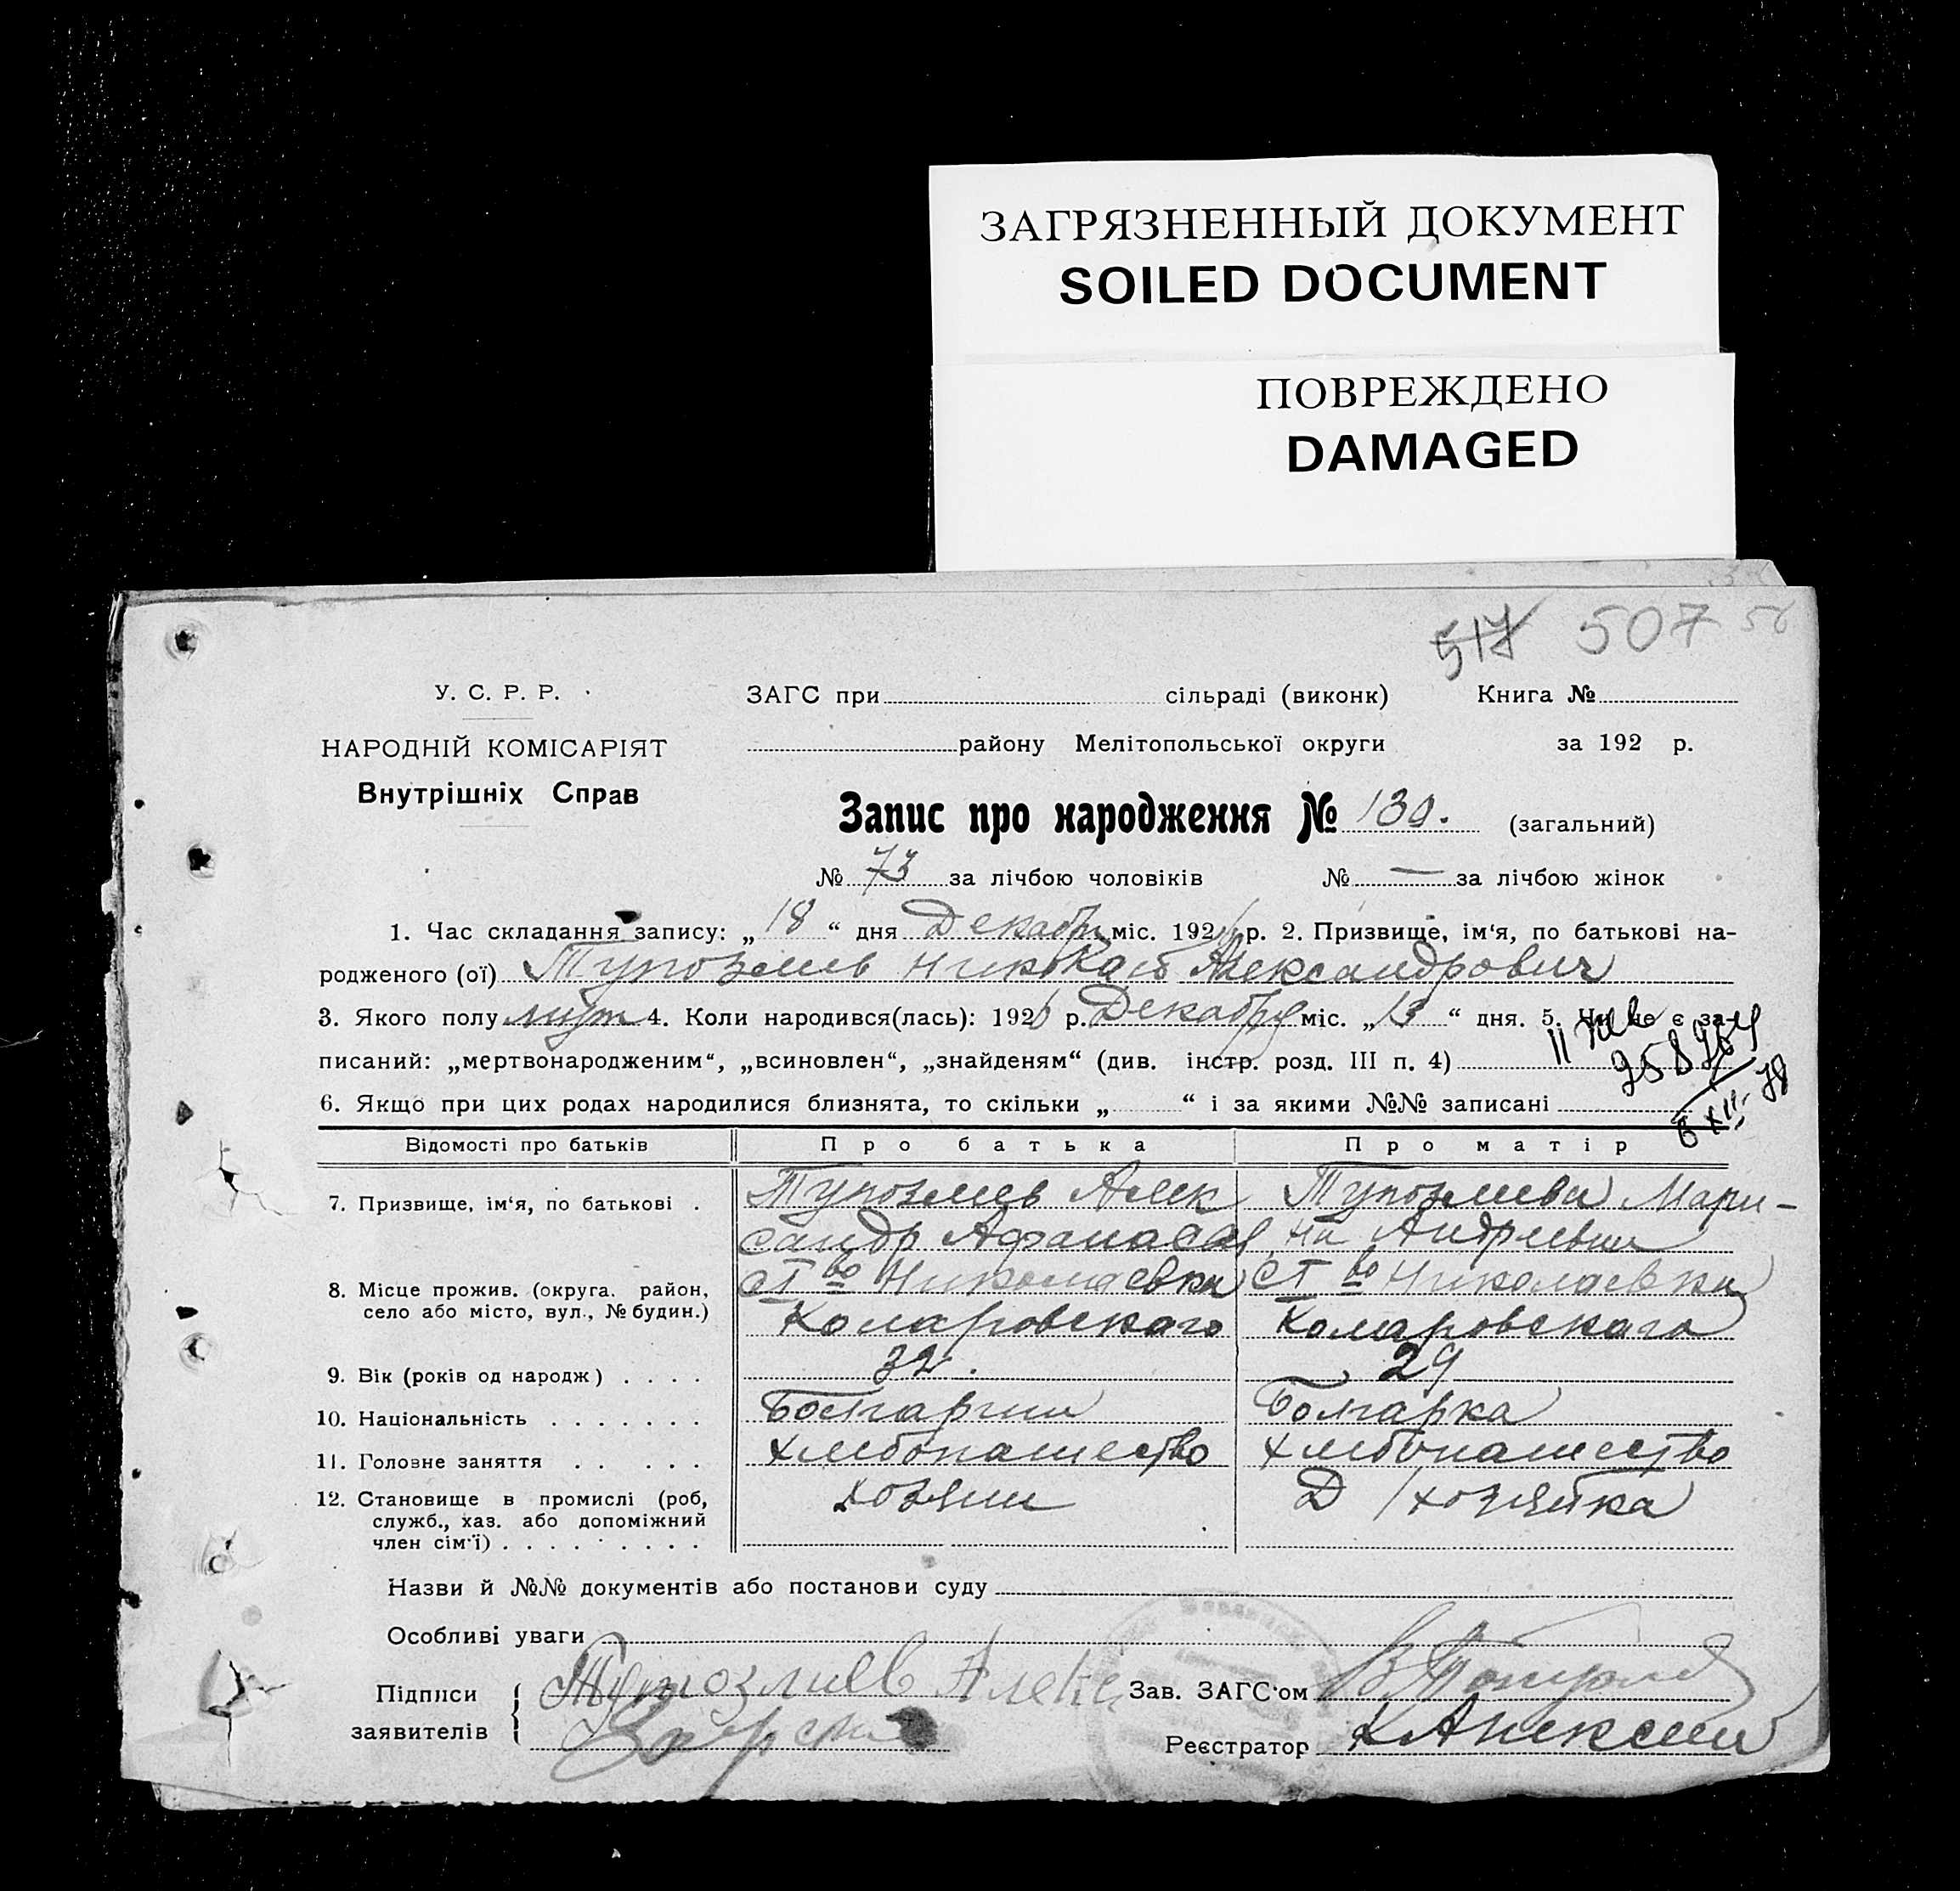 ЗАГРЯЗНЕННЫЙ ДОКУМЕНТ
SOILED DOCUMENT
ПОВРЕЖДЕНО
DAMAGED
517 507 56
У. С. Р. Р.
НАРОДНІЙ КОМІСАРІЯТ
Внутрішніх Справ
ЗАГС при сільраді (виконк) Книга №
району Мелітопольської округи за 192 р.
Запис про народження № 130. (загальний)
№ 73 за лічбою чоловіків № — за лічбою жінок
1. Час складання запису: „18“ дня Декабря міс. 1926 р. 2. Призвище, ім‘я, по батькові на-
родженого (ої) Тупозлиев Николай Александрович
3. Якого полу муж 4. Коли народився(лась): 1926 р. Декабря міс. „13“ дня. 5. Чи не є за-
писаний: „мертвонародженим“, „всиновлен“, „знайденям“ (див. інстр. розд. III п. 4)
6. Якщо при цих родах народилися близнята, то скільки „ “ і за якими №№ записані
6 XII-78
Відомості про батьків Про батька Про матір
7. Призвище, ім‘я, по батькові . Тупозлиев Алек Тупозлиева Мари-
сандр Афанасов на Андреевна
8. Місце прожив. (округа. район, ст во Николаевка ст во Николаевка
село або місто, вул., № будин.) Комаровскаго Комаровскаго
9. Вік (років од народж) . . . . 32. 29
10. Національність . . . . . . . Болгарин Болгарка
11. Головне заняття . . . . . хлебопашество хлебопашество
12. Становище в промислі (роб, хозяин Д/хозяйка
служб., хаз. або допоміжний
член сім‘ї) . . . . . . . . .
Назви й №№ документів або постанови суду
Особливі уваги
Підписи Тупозлиев Алекс Зав. ЗАГС‘ом
заявителів Реєстратор